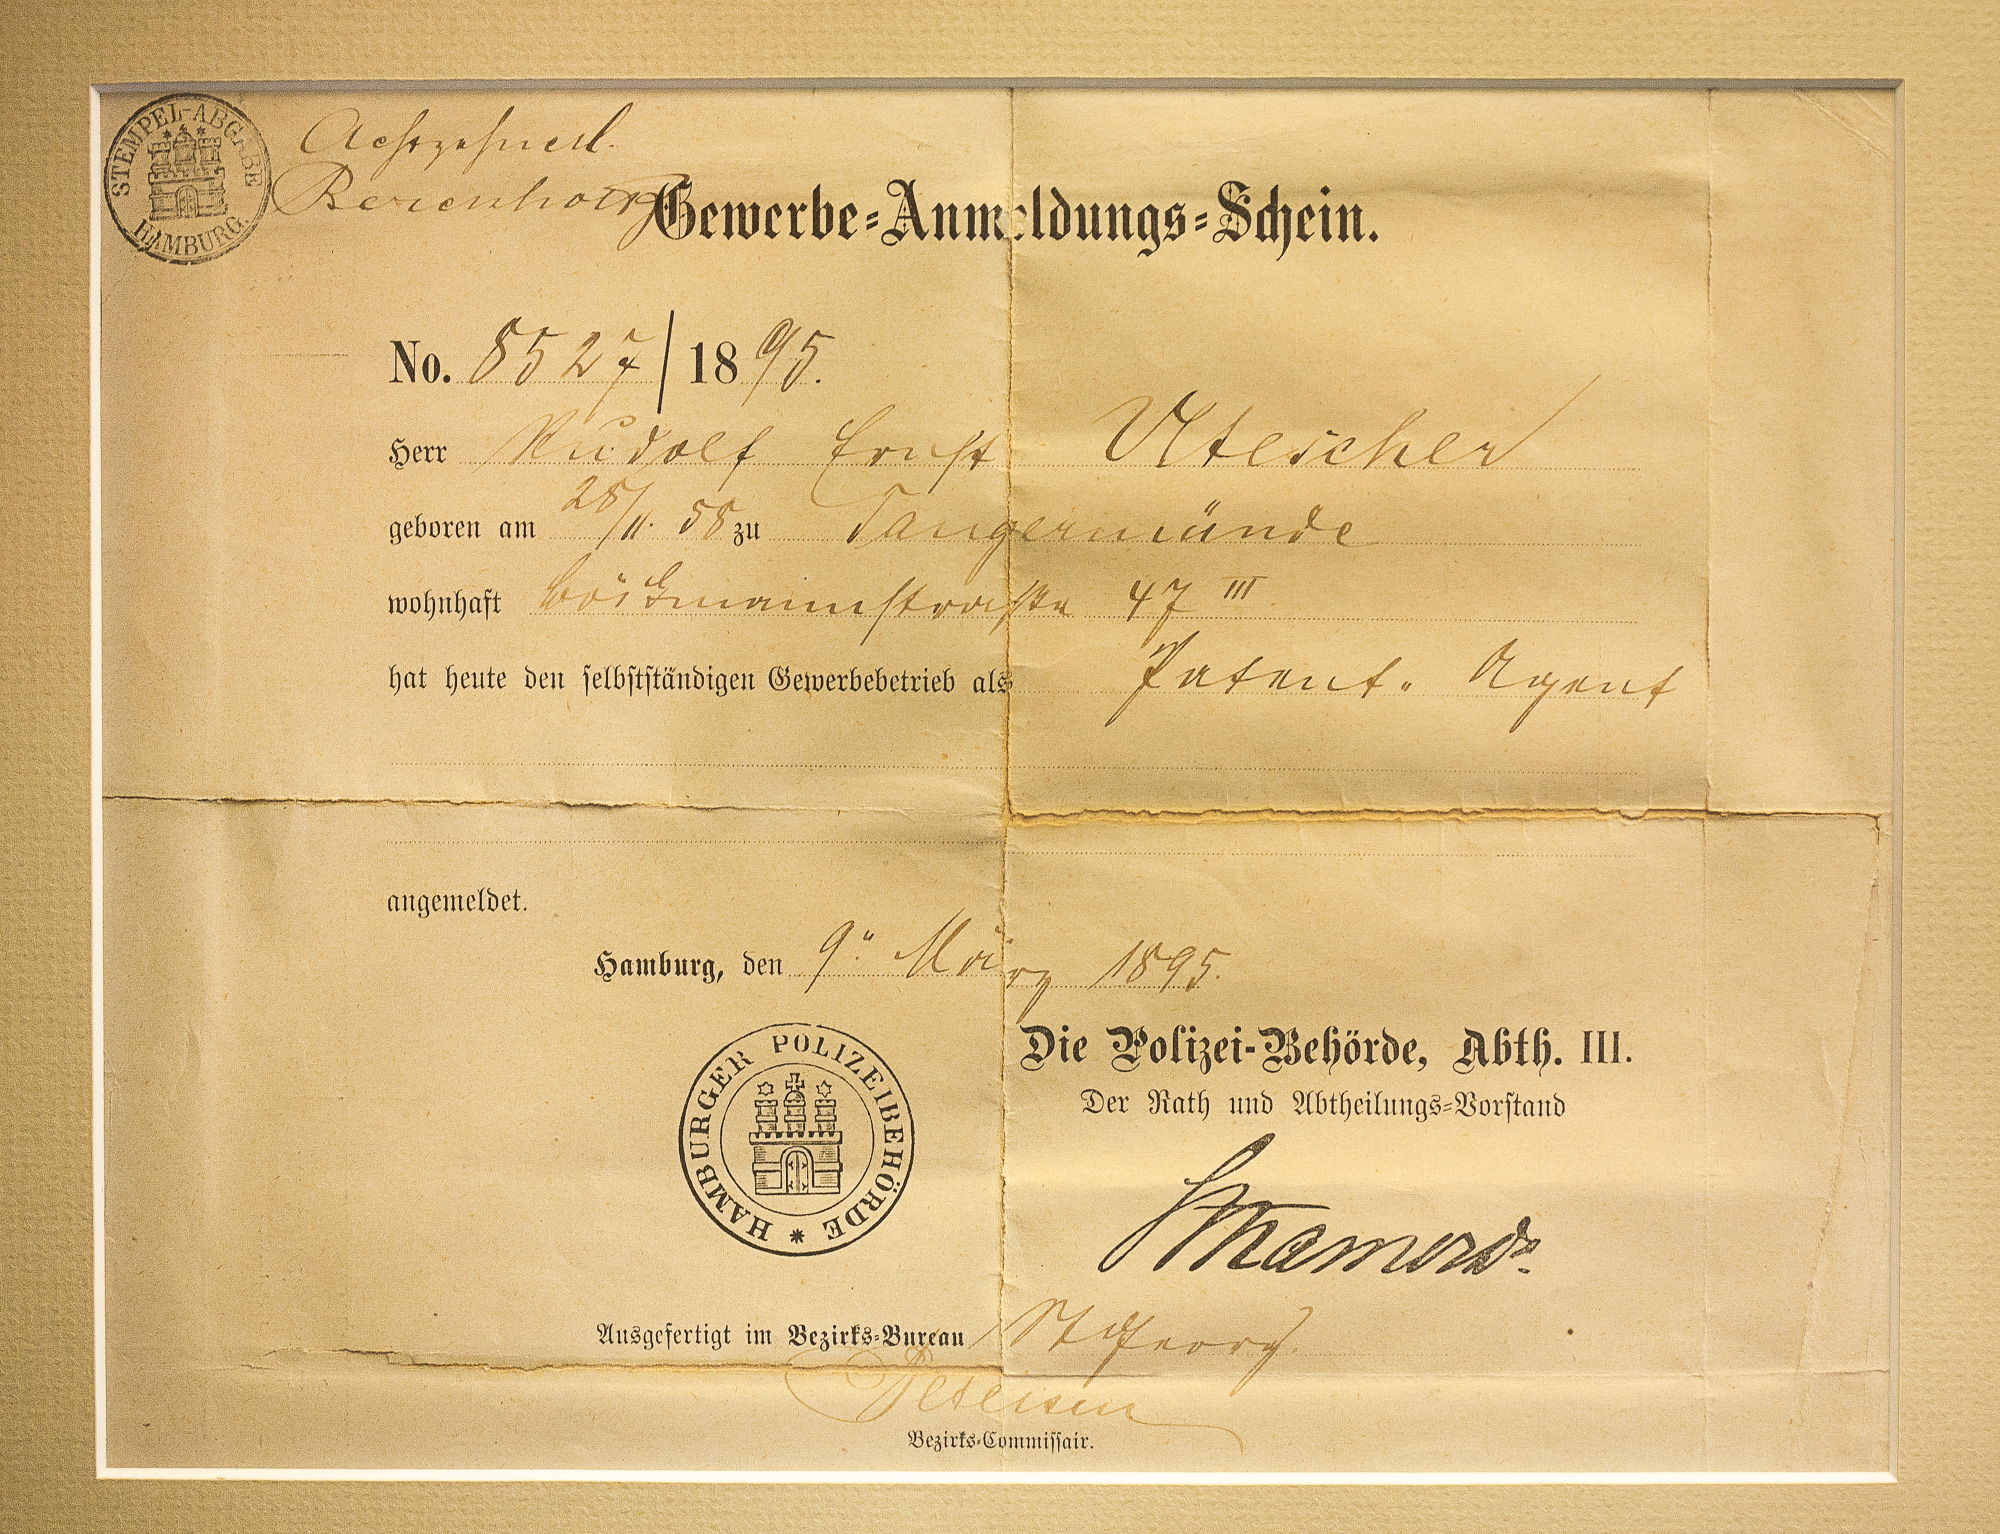 STEMPEL-ABGABE HAMBURG.
Gewerbe=Anmeldungs=Schein.
No. 8527/1895.
Herr Rudolf Ernst Utescher
geboren am 28/11. 58 zu Tangermünde
wohnhaft Böckmannstraße 47 III
hat heute den selbstständigen Gewerbebetrieb als Patent-Agent
angemeldet.
Hamburg, den 9. März 1895.
HAMBURGER POLIZEIBEHÖRDE
Die Polizei-Behörde, Abth. III.
Der Rath und Abtheilungs=Vorstand
Ausgefertigt im Bezirks=Bureau St Georg.
Petersen
Bezirks=Commissair.